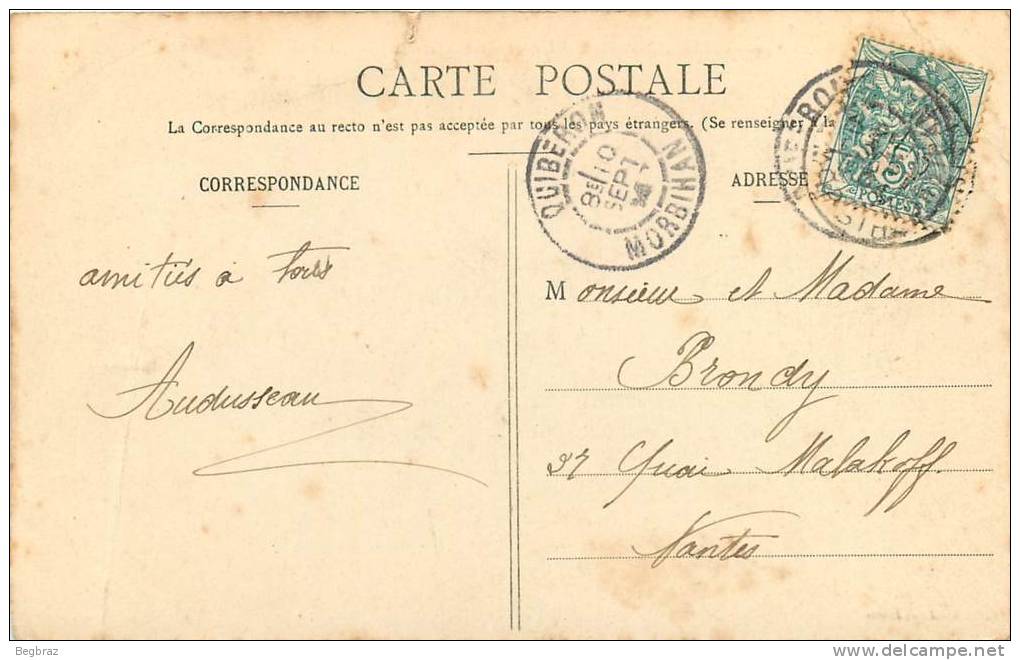 CARTE POSTALE
La Correspondance au recto n'est pas acceptée par tous les pays étrangers. (Se renseigner à la
CORRESPONDANCE
ADRESSE
QUIBERON
8E/10
SEPT
MORBIHAN
5c
POSTES
amitiés à tous
Audusseau
Monsieur et Madame
Brondy
37 Quai Malakoff.
Nantes
Begbraz
www.delcampe.net